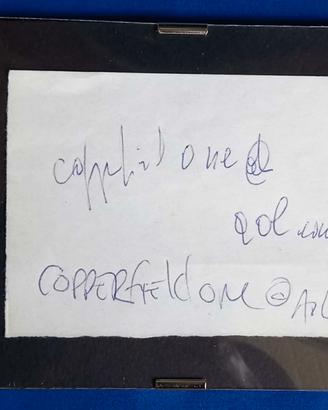 copperfield one @
aol.com
COPPERFIELD ONE @ AOL